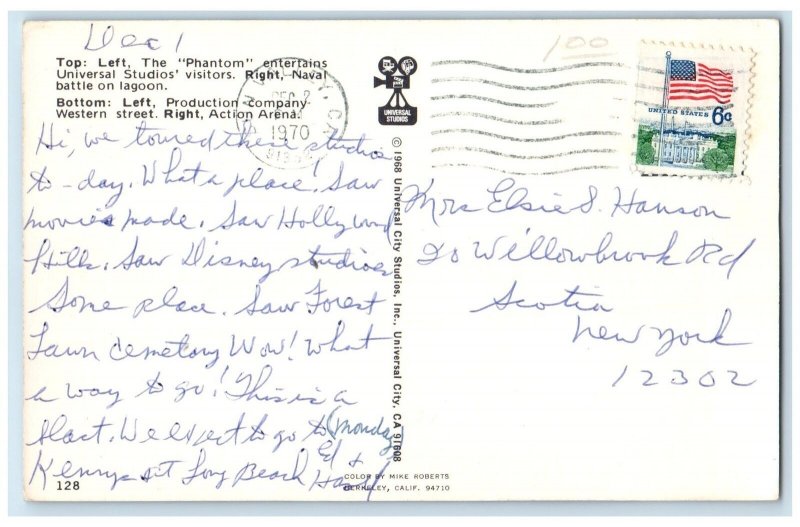 Dec 1
Top: Left, The "Phantom" entertains
Universal Studios' visitors. Right, Naval
battle on lagoon.
Bottom: Left, Production company
Western street. Right, Action Arena.
Hi, we toured these studios
to-day. What a place! Saw
movies made. Saw Hollywood
Hills. Saw Disney studios
Some place. Saw Forest
Lawn cemetary Wow! What
a way to go! This is a
blast. We expect to go to (Monday)
Kenny's at Long Beach Ed &
128
UNIVERSAL
STUDIOS
© 1968 Universal City Studios, Inc., Universal City, CA 91608
COLOR BY MIKE ROBERTS
BERKELEY, CALIF. 94710
DEC 2
1970
100
UNITED STATES 6c
Mrs Elsie S. Hanson
20 Willowbrook Rd
Scotia
New York
12302